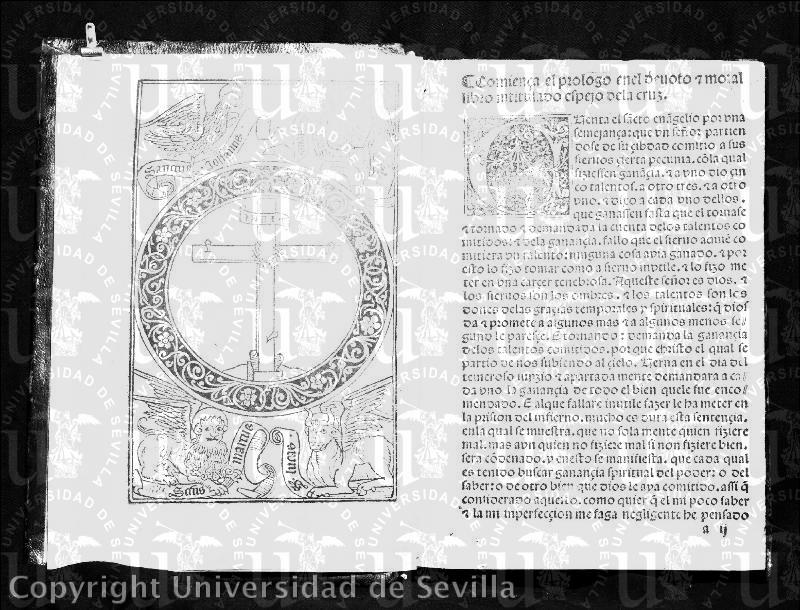 Sanctus Johanes
INRI
marcus
lucas
Comiença el prologo enel deuoto ⁊ moral
libro intitulado espejo dela cruz.
Uenta el sacro euãgelio por vna
semejança: que vn señor partien
dose de su cibdad comitio a sus
sieruos cierta pecunia. cõla qual
fiziessen ganãcia. ⁊ a vno dio cin
co talentos. a otro tres. ⁊ a otro
vno. ⁊ dixo a cada vno dellos.
que ganassen fasta que el tornase
⁊ tornado ⁊ demandada la cuenta delos talentos co
mitidos: ⁊ dela ganancia. fallo que el sieruo aquiẽ co
mitiera vn talento: ninguna cosa auia ganado. ⁊ por
esto lo fizo tomar como a sieruo inutile. ⁊ lo fizo me
ter en vna carcer tenebrosa. Aqueste señor es dios. ⁊
los sieruos son los ombres. ⁊ los talentos son los
dones delas gracias temporales y spirituales: q̃ dios
da ⁊ promete a algunos mas ⁊ a algunos menos se
gund le paresce. E tornando: demanda la ganancia
delos talentos comitidos. porque christo el qual se
partio de nos subiendo al cielo. Uerna en el dia del
temeroso iuyzio ⁊ apartada mente demandara a ca
da vno la ganancia de todo el bien quele fue enco
mendado. E al que fallare inutile fazer le ha meter en
la prision del infierno. mucho es dura esta sentencia.
enla qual se muestra. que no sola mente quien fiziere
mal. mas avn quien no fiziere mal si non fiziere bien.
sera cõdenado. y enesto se manifiesta. que cada qual
es tenido buscar ganancia spiritual del poder: o del
saber: o de otro bien que dios le aya comitido. assi q̃
considerado aquesto. como quier q̃ el mi poco saber
⁊ la mi inperfeccion me faga negligente he pensado
a ij
Copyright Universidad de Sevilla